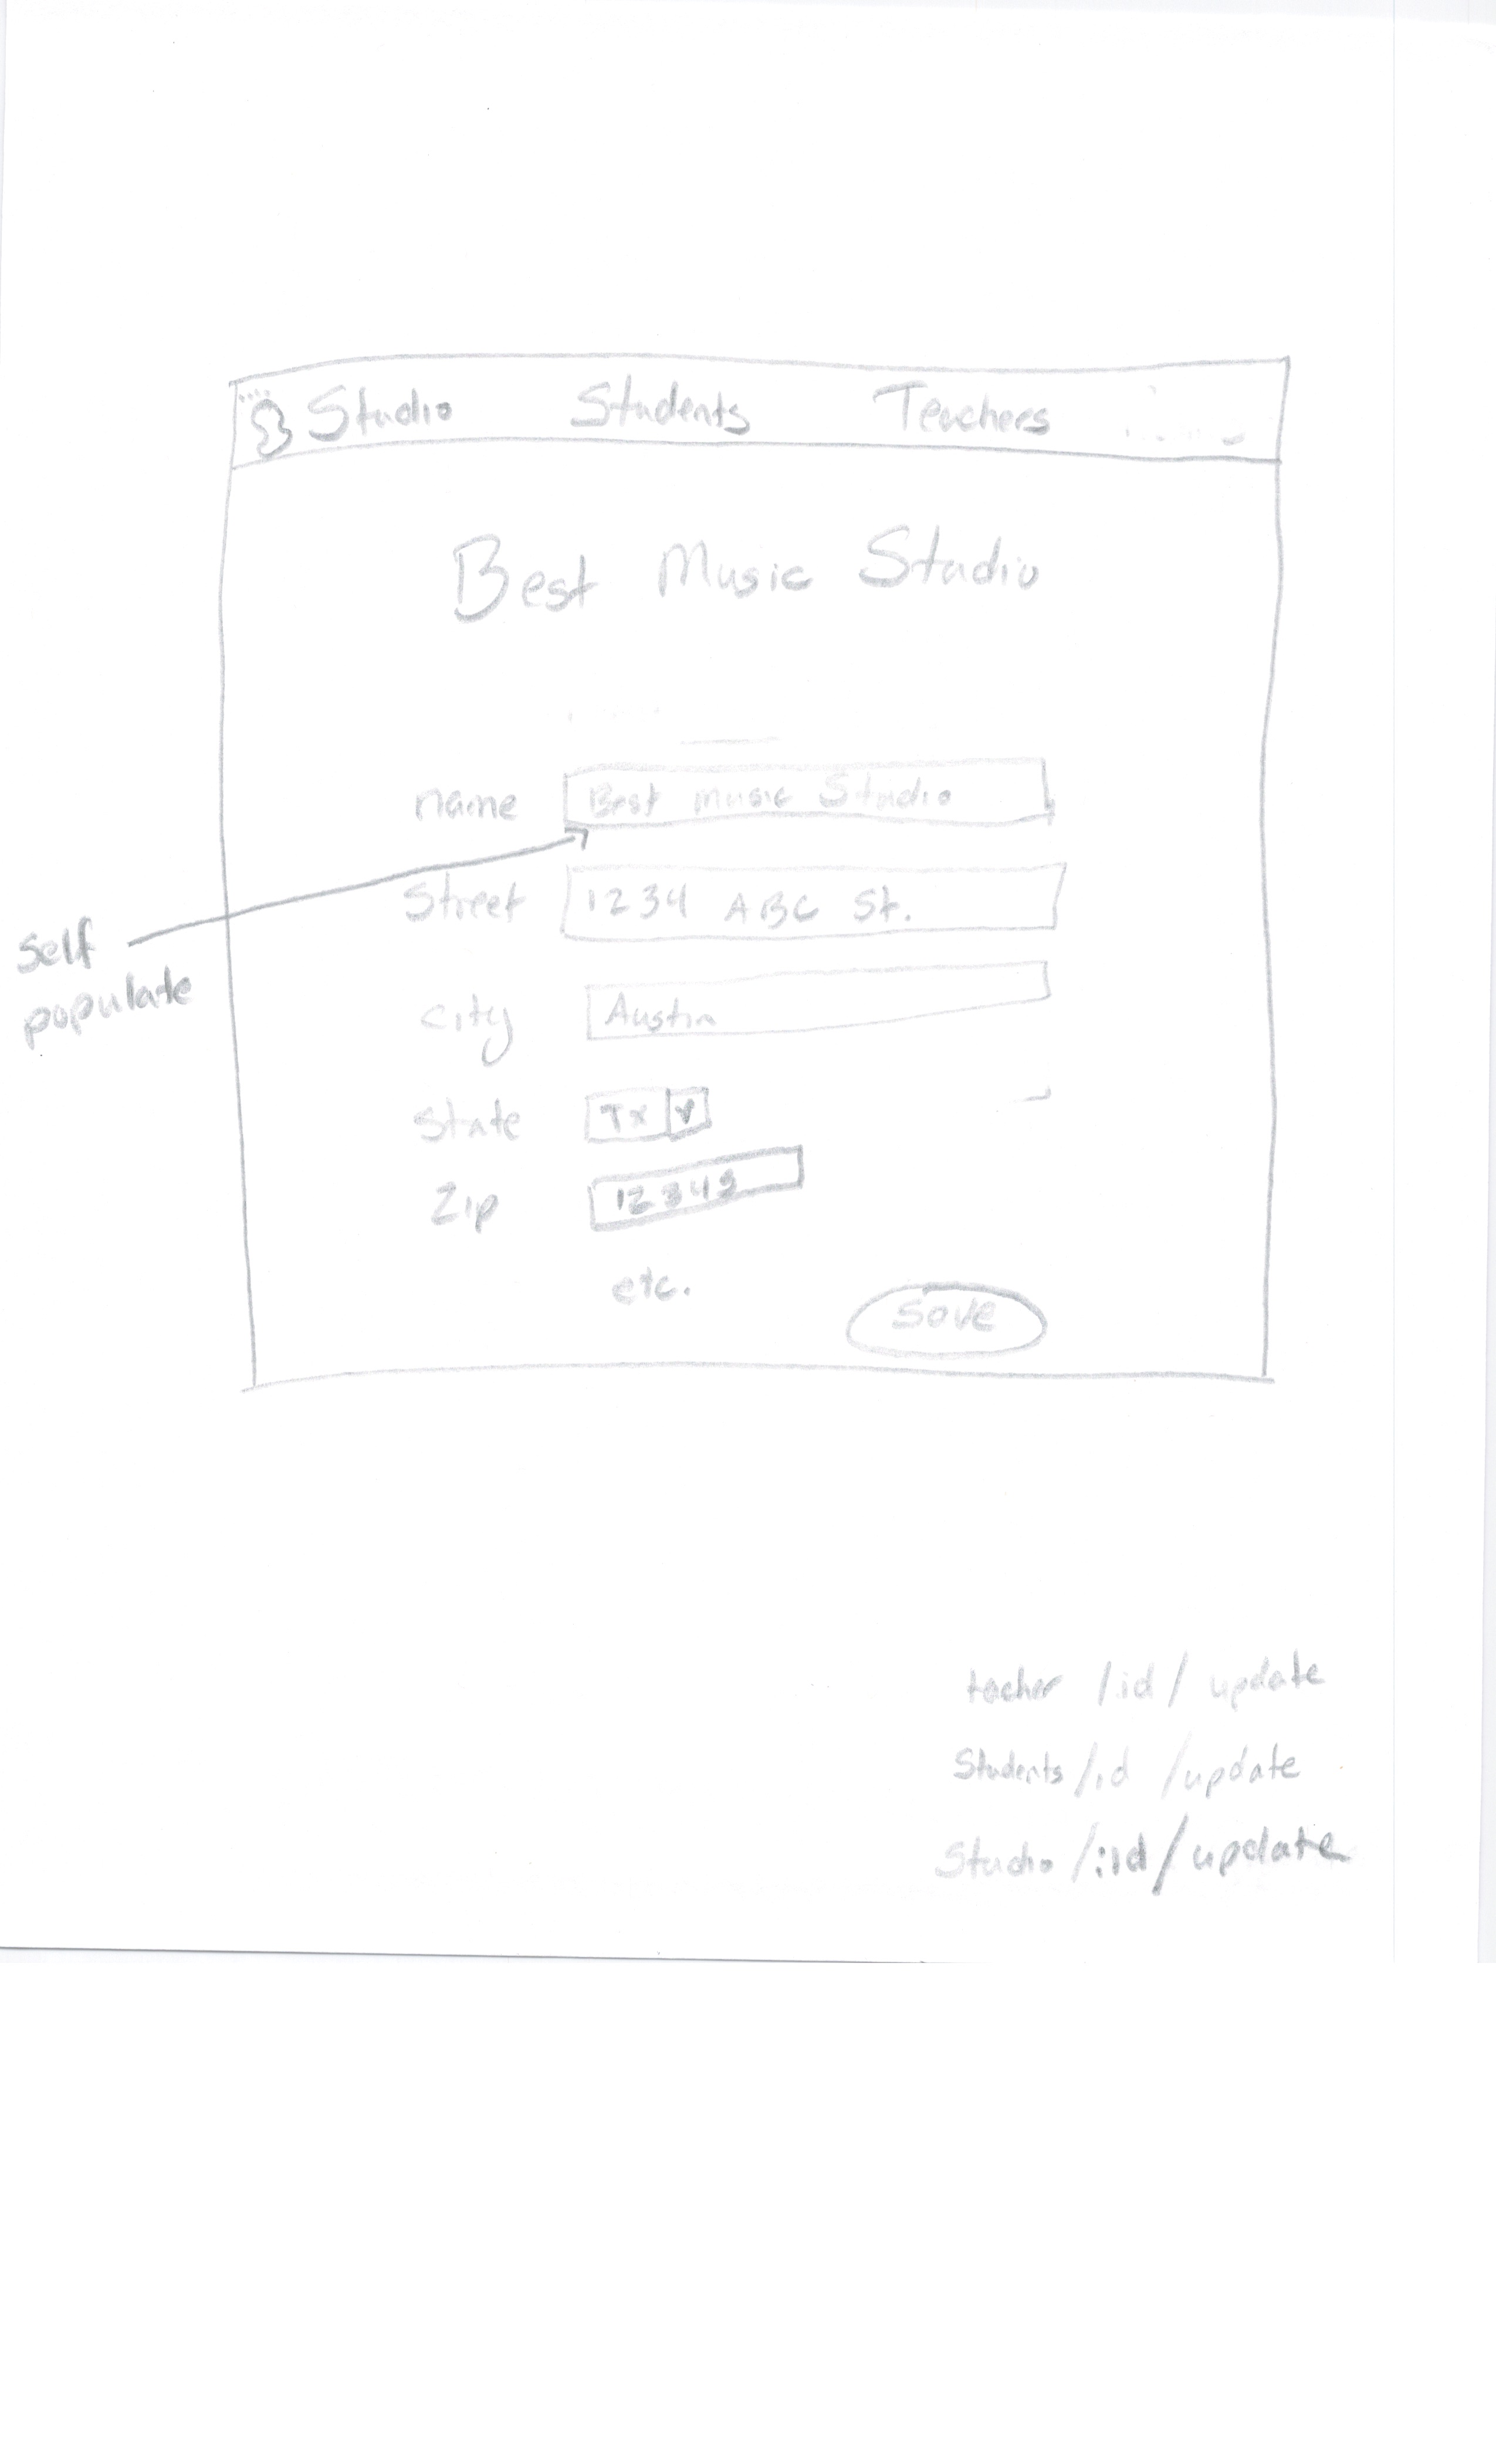 Studio Students Teachers
Best Music Studio
name Best Music Studio
Street 1234 ABC St.
self
populate
city Austin
State Tx
Zip
etc.
save
teacher /id/ update
Students /id /update
Studio /:id/update